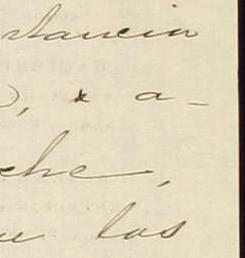 stancia
), & a-
che,
ue las